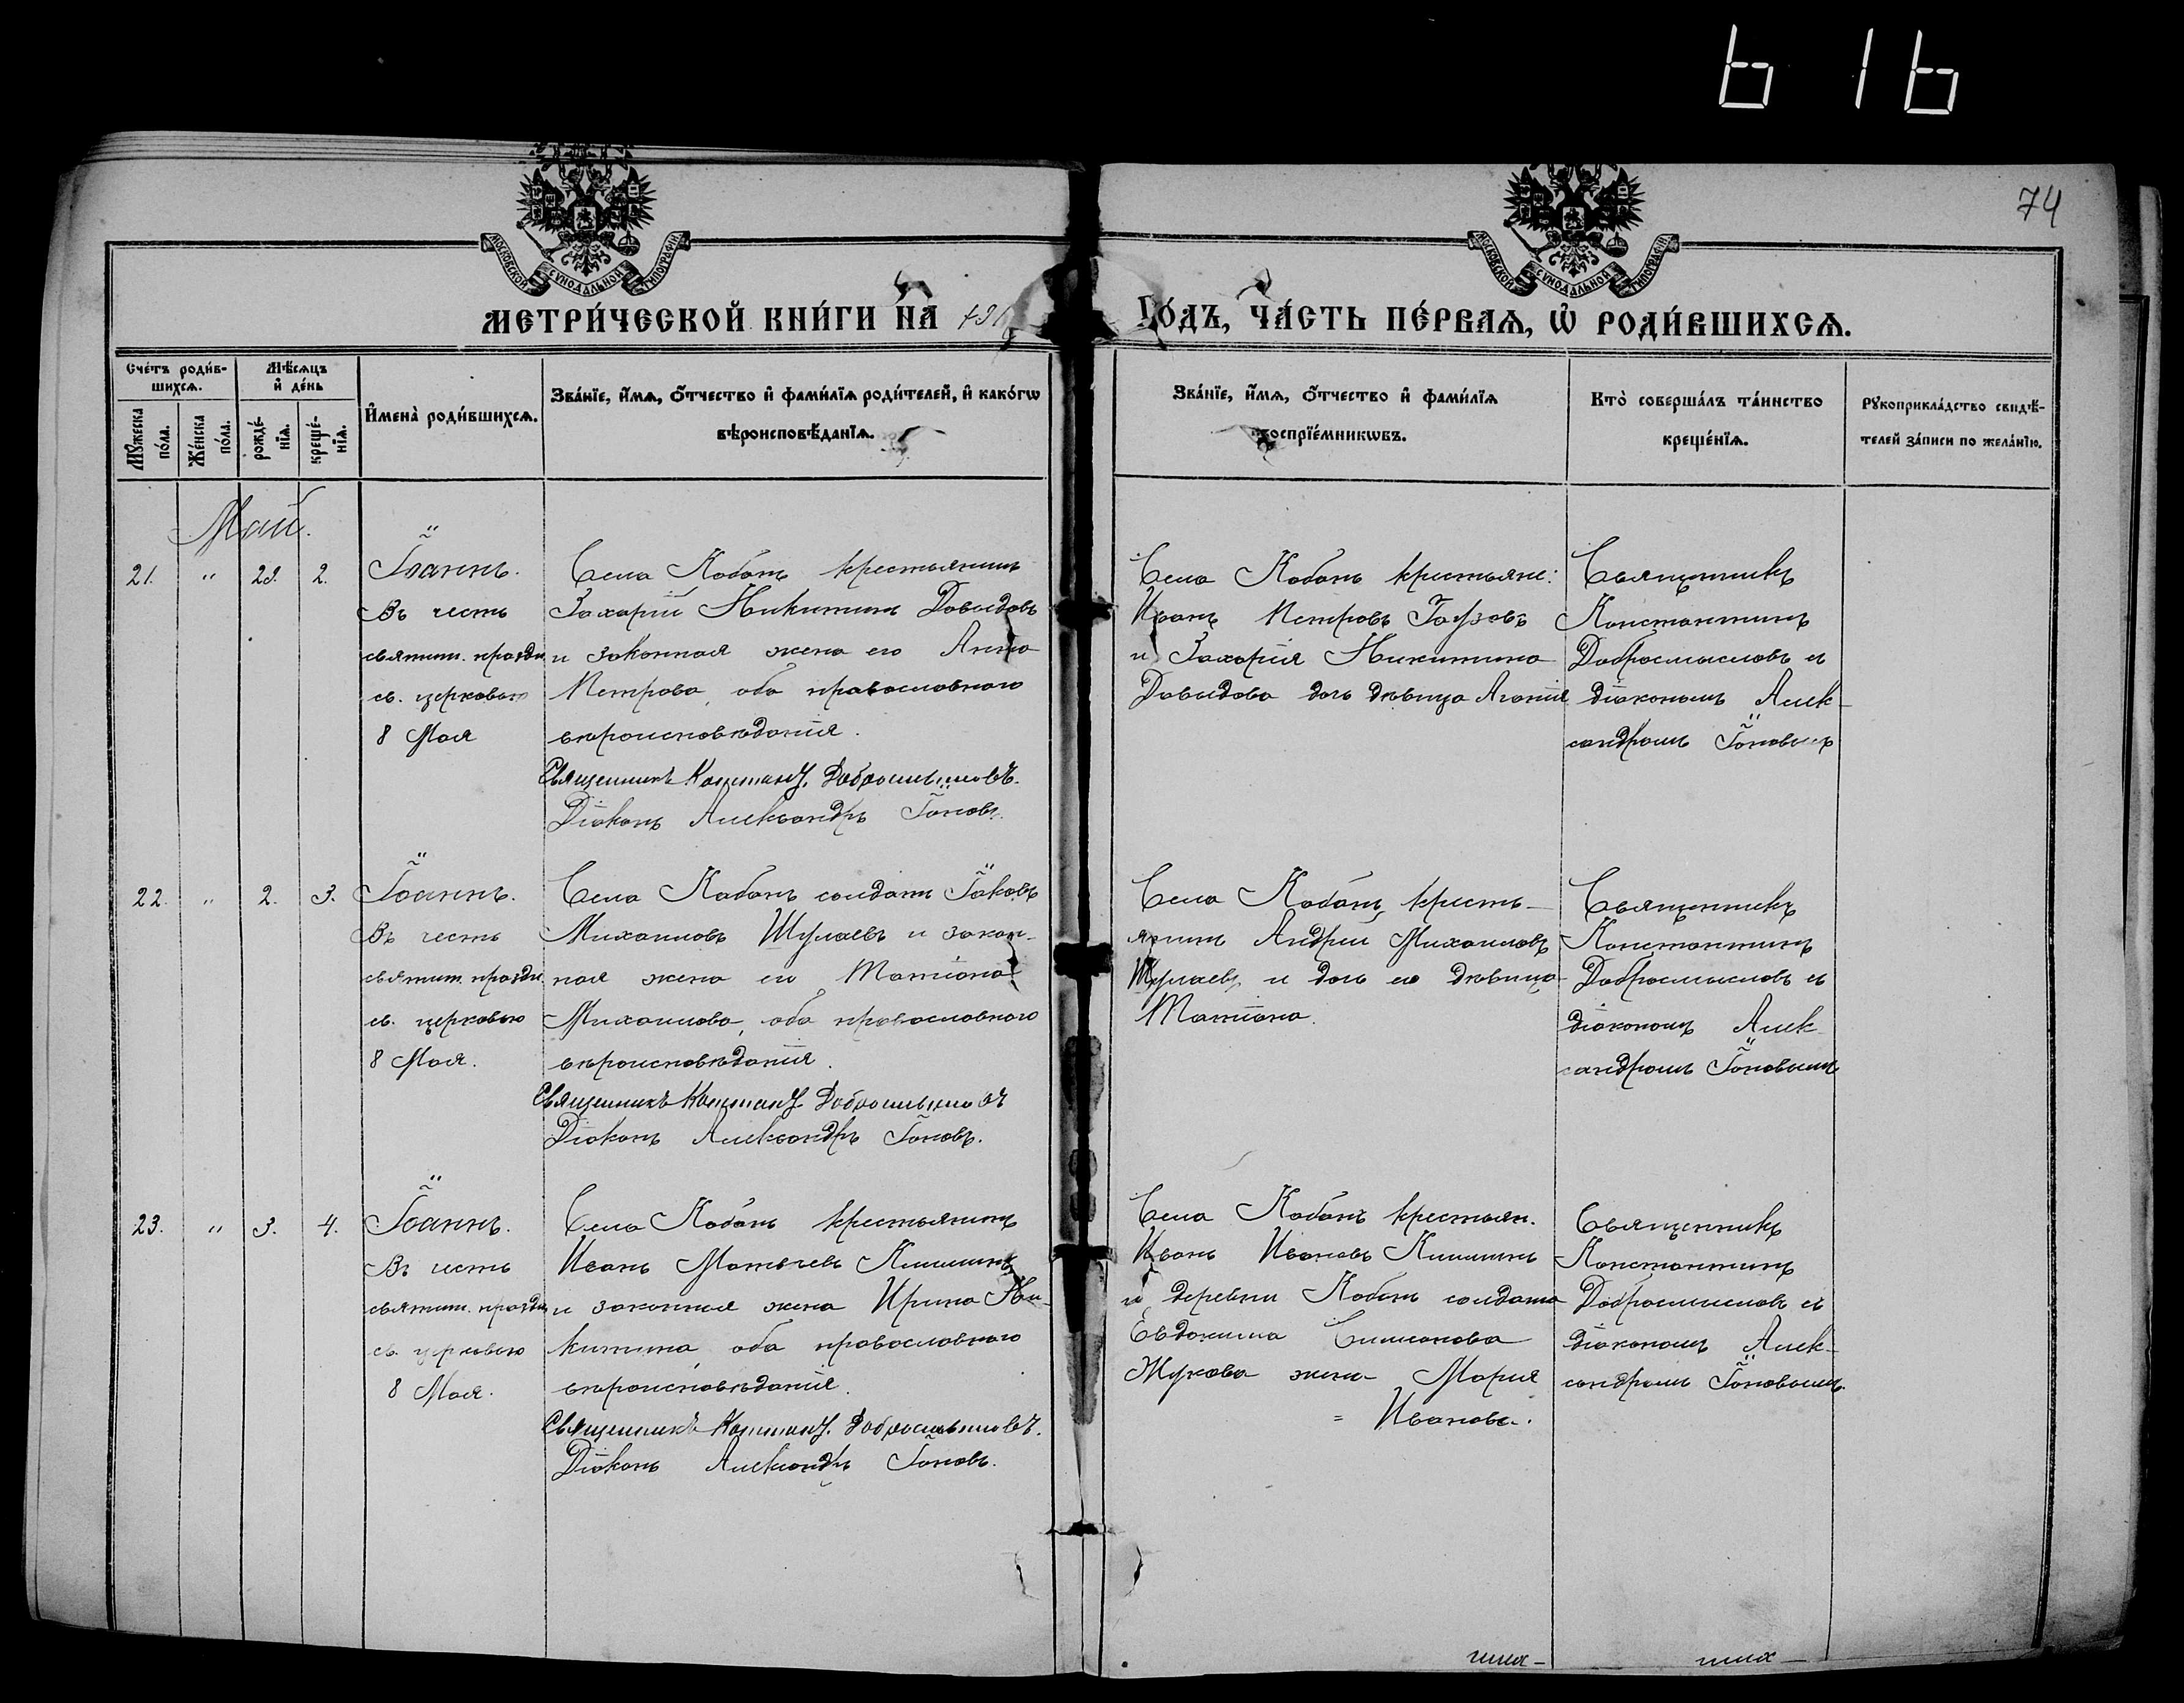 616
74
МОСКОВСКОЙ СѴНОДАЛЬНОЙ ТИПОГРАФІИ
МОСКОВСКОЙ СѴНОДАЛЬНОЙ ТИПОГРАФІИ
МЕТРИ́ЧЕСКОЙ КНИ́ГИ НА 191
ГО́ДЪ, ЧА́СТЬ ПЕ́РВАЯ, Ѡ РОДИ́ВШИХСѦ.
Сче́тъ роди́в-
шихсѧ.
Мꙋ́жеска
по́ла.
Же́нска
по́ла.
Мѣ́сѧцъ
и де́нь
рожде́-
нїѧ.
креще́-
нїѧ.
Имена̀ роди́вшихсѧ.
Зва́нїе, и́мѧ, о́тчество и фами́лїѧ роди́телей, и како́гѡ
вѣроисповѣ́данїѧ.
Зва́нїе, и́мѧ, о́тчество и фами́лїѧ
воспрїе́мникѡвъ.
Кто̀ соверша́лъ та́инство
креще́нїѧ.
Рꙋкоприкла́дство свидѣ́-
телей за́писи по жела́нїю.
Май.
21. " 29. 2.
Іоаннъ.
Въ честь
святит. праздн.
св. церковью
8 Мая
Села Кабанъ крестьянинъ
Захарій Никитинъ Давыдовъ
и законная жена его Анна
Петрова, оба православнаго
вѣроисповѣданія.
Священникъ Констант. Добросмысловъ.
Діаконъ Александръ Іоновъ.
Села Кабанъ крестьяне:
Иванъ Петровъ
и Захарія Никитина
Давыдова дочь дѣвица Агапія
Священникъ
Константинъ
Добросмысловъ съ
діакономъ Алек-
сандромъ Іоновымъ
22. " 2. 3.
Іоаннъ.
Въ честь
святит. праздн.
св. церковью
8 Мая.
Села Кабанъ солдатъ Іаковъ
Михаиловъ Шулаевъ и закон-
ная жена его Татіана
Михаилова, оба православнаго
вѣроисповѣданія.
Священникъ Констант. Добросмысловъ
Діаконъ Александръ Іоновъ.
Села Кабанъ, кресть-
янинъ Андрей Михаиловъ
Шулаевъ и дочь его дѣвица
Татіана.
Священникъ
Константинъ
Добросмысловъ съ
діакономъ Алек-
сандромъ Іоновымъ
23. " 3. 4.
Іоаннъ.
Въ честь
святит. праздн.
св. церковью
8 Мая.
Села Кабанъ крестьянинъ
Иванъ Матвѣевъ Кишкинъ
и законная жена Ирина Ни-
китина, оба православнаго
вѣроисповѣданія.
Священникъ Констант. Добросмысловъ.
Діаконъ Александръ Іоновъ.
Села Кабанъ крестьян.
Иванъ Ивановъ Кишкинъ
и деревни Кабанъ солдата
Евдокима Симонова
Жукова жена Марія
= Иванова.
Священникъ
Константинъ
Добросмысловъ съ
діакономъ Алек-
сандромъ Іоновымъ.